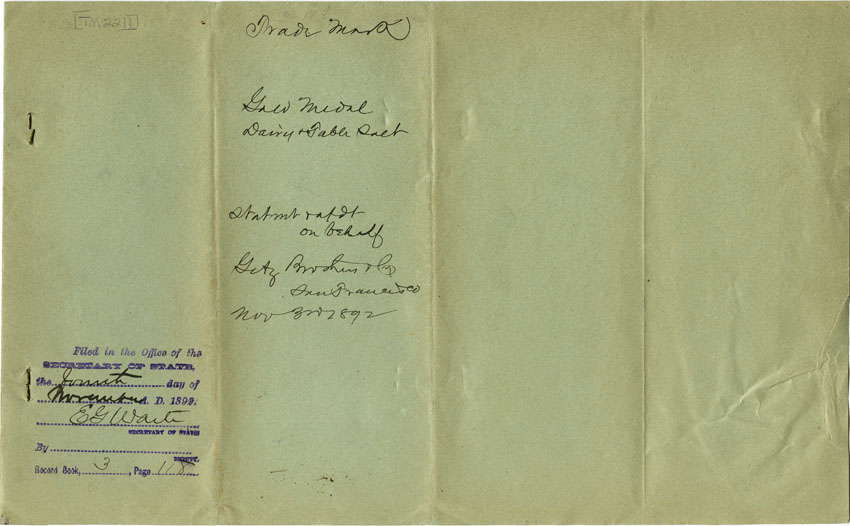 [TM 2211]
Trade Mark
Gold Medal
Dairy & Table Salt
Statmt & afdt
on behalf
Getz Brothers & Co
San Francisco
Nov 3rd 1892
Filed in the Office of the
SECRETARY OF STATE
the fourth day of
November A. D. 1892.
E G Waite
SECRETARY OF STATE
By
DEPUTY.
Record Book, 3, Page 118